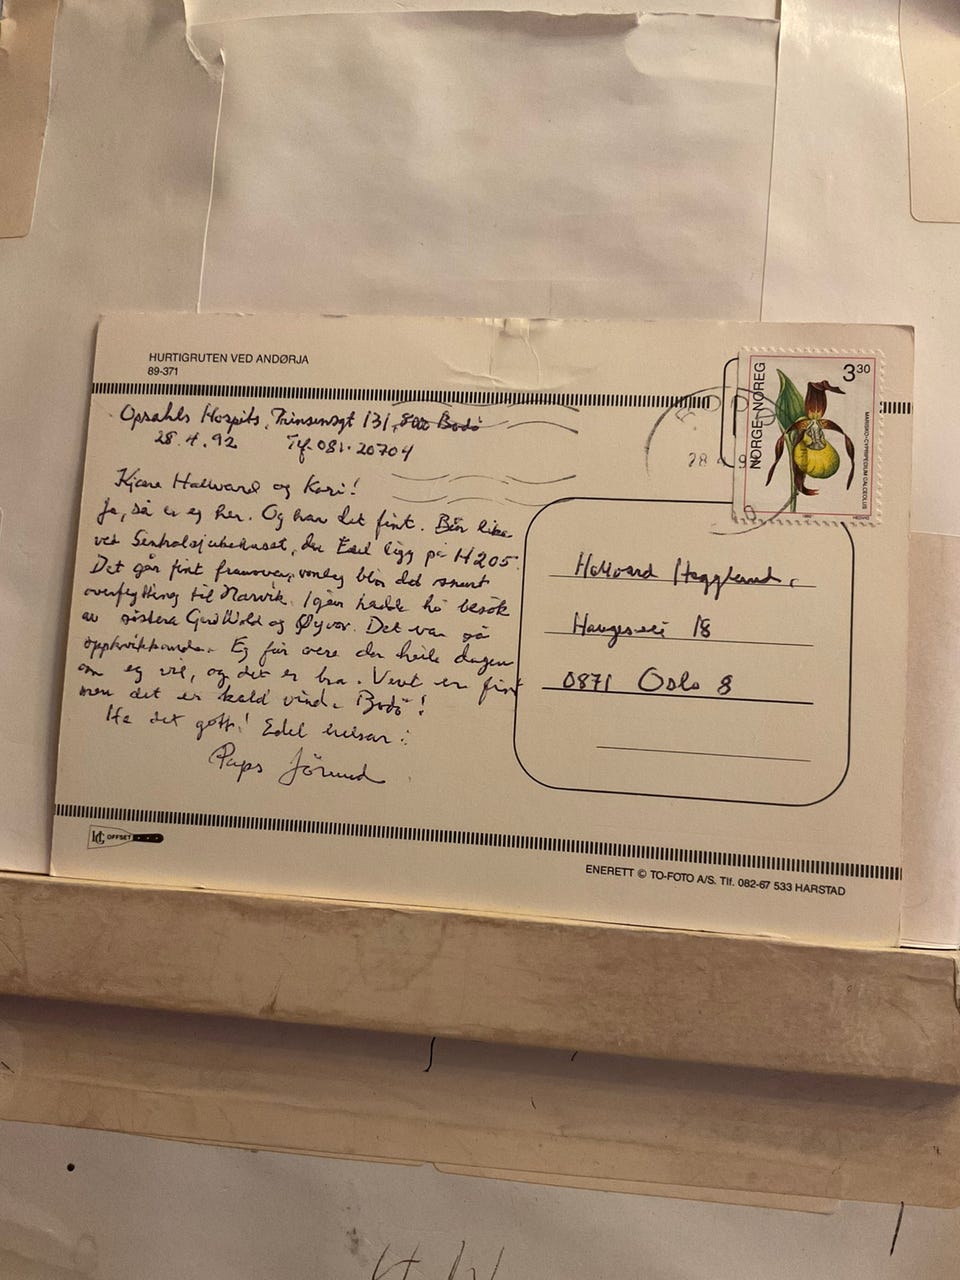 HURTIGRUTEN VED ANDØRJA
89-371
NORGE·NOREG
3 30
MARISKO·CYPRIPEDIUM CALCEOLUS
28 4 9
Opsahls Hospits, Prinsensgt 131, Bodö
28.4.92 Tlf. 081·20704
Kjære Hallvard og Kari!
Ja, så er eg her. Og har det fint. Bur like
ved Sentralsjukehuset, der Edel ligg på H205.
Det går fint framover, vonleg blir det snart
overflytting til Narvik. Igår hadde ho besök
av sistera og Øyvor. Det var så
oppkvikkande. Eg får vere der heile dagen
om eg vil, og det er bra. Veret er fint
men det er kald vind. Bodö!
Ha det gott! Edel helsar!
Paps Jörund
Hallvard Hegglund,
Haugesvei 18
0871 Oslo 8
OFFSET
ENERETT © TO-FOTO A/S. Tlf. 082-67 533 HARSTAD